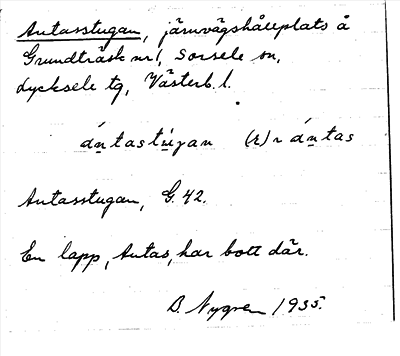 Antasstugan, järnvägshållplats å
Grundträsk nr 1, Sorsele sn,
Lycksele tg, Västerb. l.
ántastúgan (r) r ántas
Antasstugan, G. 42.
En lapp, Antas, har bott där.
B. Nygren 1935.